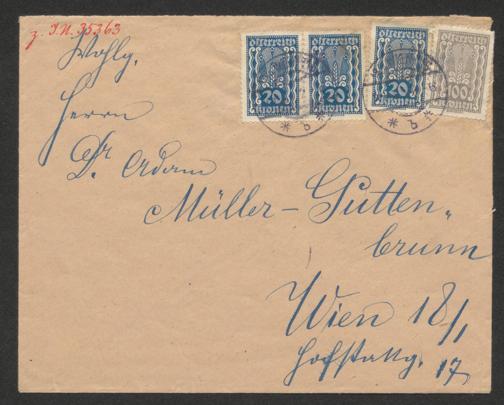 z. I.N. 35363
österreich österreich österreich österreich
20 20 20 100
kronen kronen kronen kronen
* b *
* b *
Wohlg.
Herrn
Dr. Adam
Müller-Gutten„
brunn
Wien 18/1
17